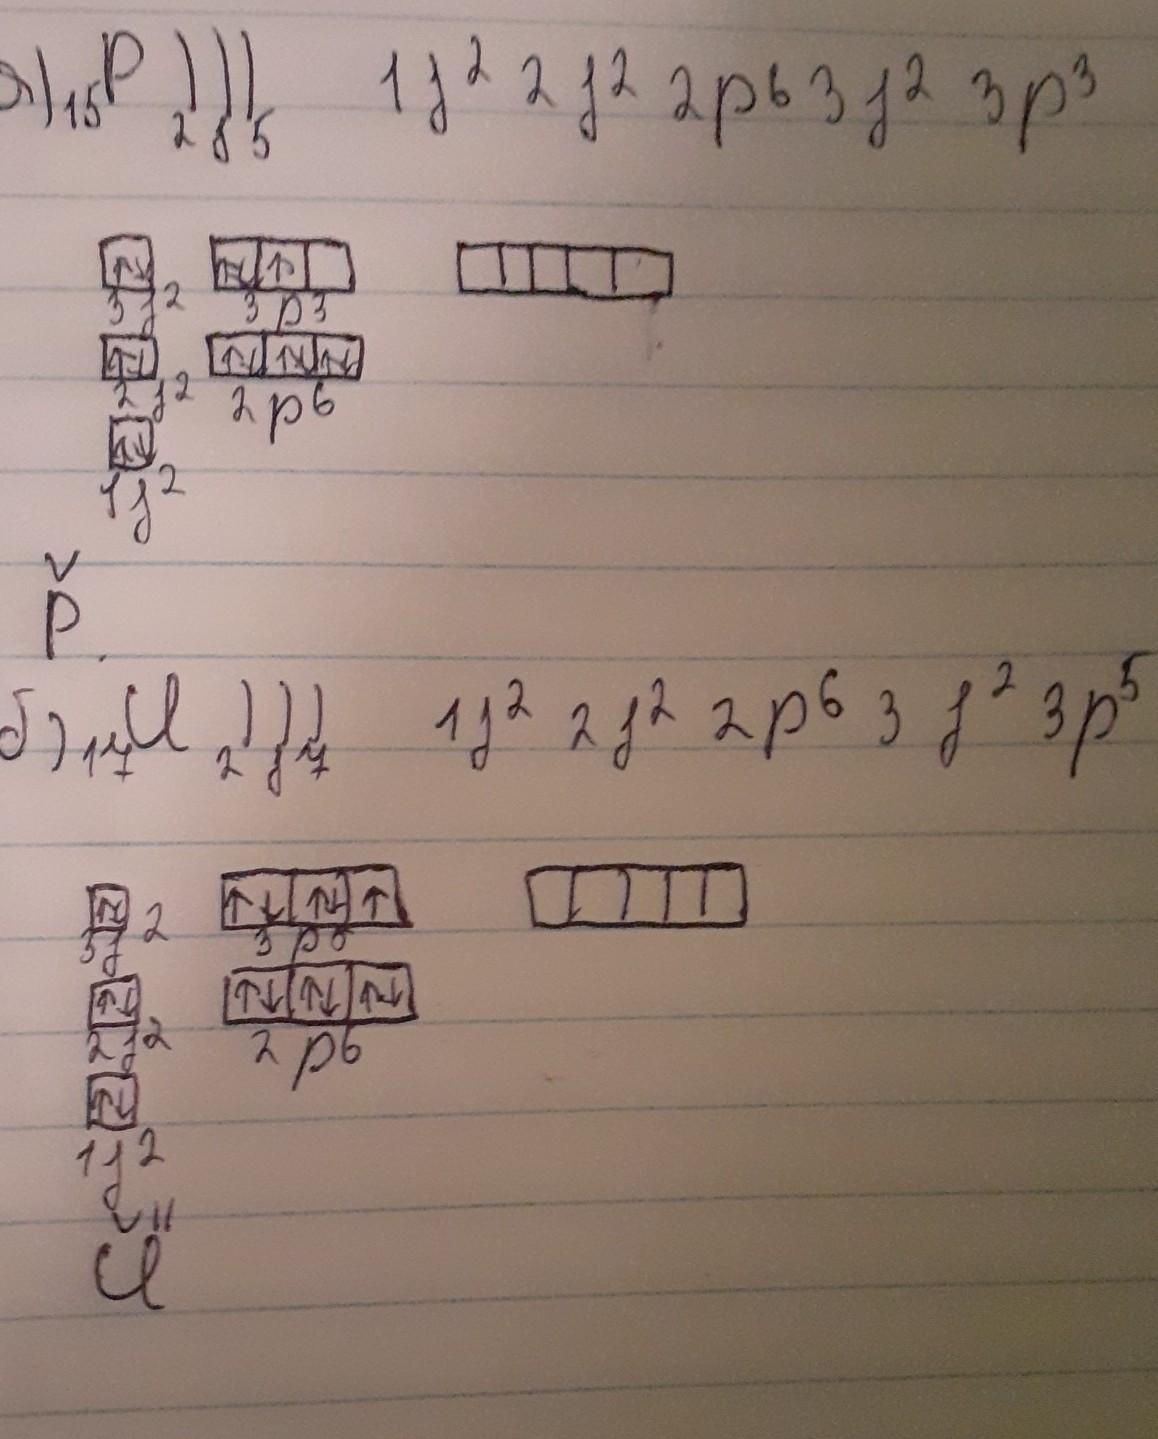 а) ₁₅P ₂)₈)₅) 1s² 2s² 2p⁶ 3s² 3p³
↑↓ ↑↓ ↑
3s² 3p³
↑↓ ↑↓ ↑↓ ↑↓
2s² 2p⁶
↑↓
1s²
V
P
б) ₁₇Cl ₂)₈)₇) 1s² 2s² 2p⁶ 3s² 3p⁵
↑↓ ↑↓ ↑↓ ↑
3s² 3p⁵
↑↓ ↑↓ ↑↓ ↑↓
2s² 2p⁶
↑↓
1s²
VII
Cl